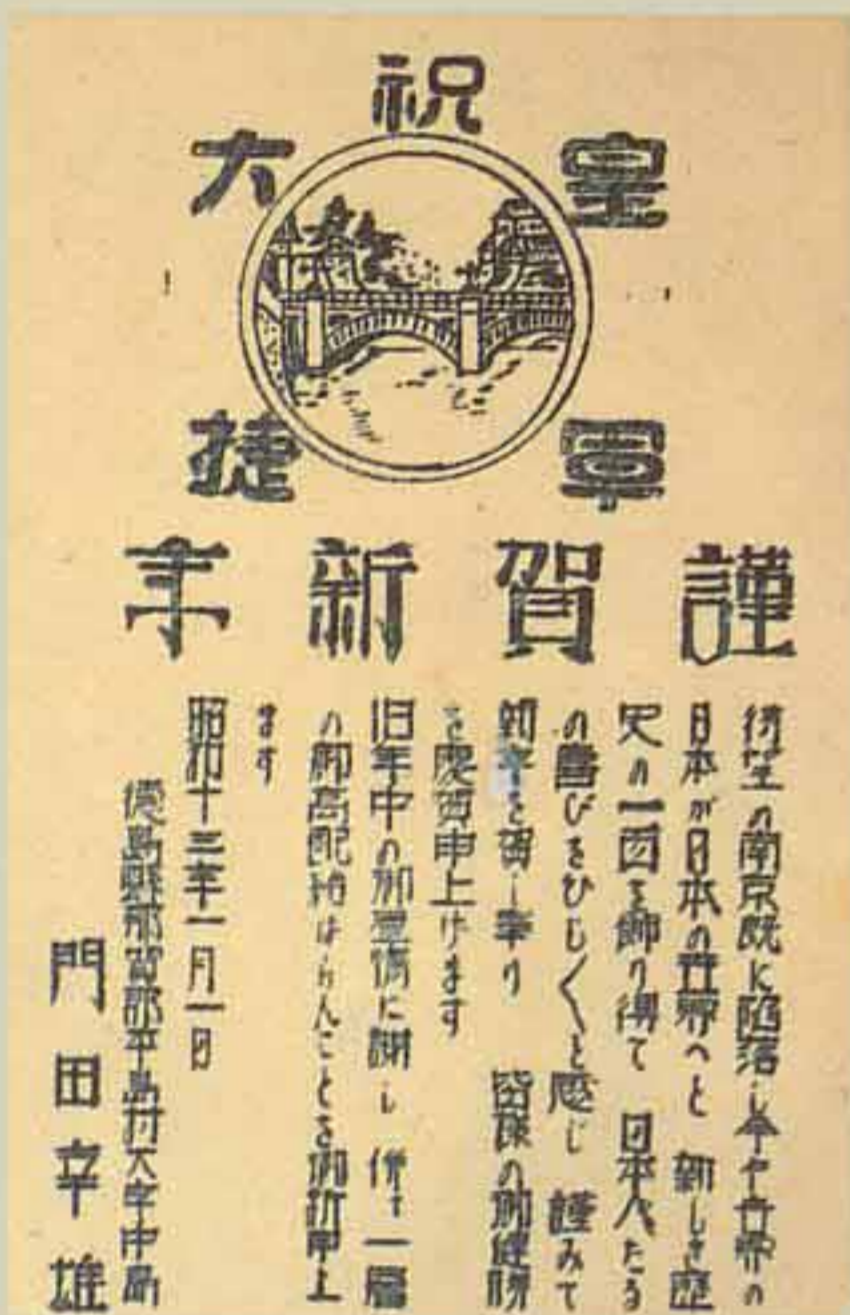 祝
皇軍
大捷
謹賀新年
待望の南京既に陥落し今や世界の
日本が日本の世界へと 新しき歴
史の一図を飾り得て 日本人たる
の喜びをひし〱と感じ 謹みて
新年を賀し奉り 皆様の御健勝
を慶賀申上げます
旧年中の御厚情に謝し 併て一層
の御高配給はらんことを御祈申上
ます
昭和十三年一月一日
徳島縣那賀郡平島村大字中島
門田幸雄